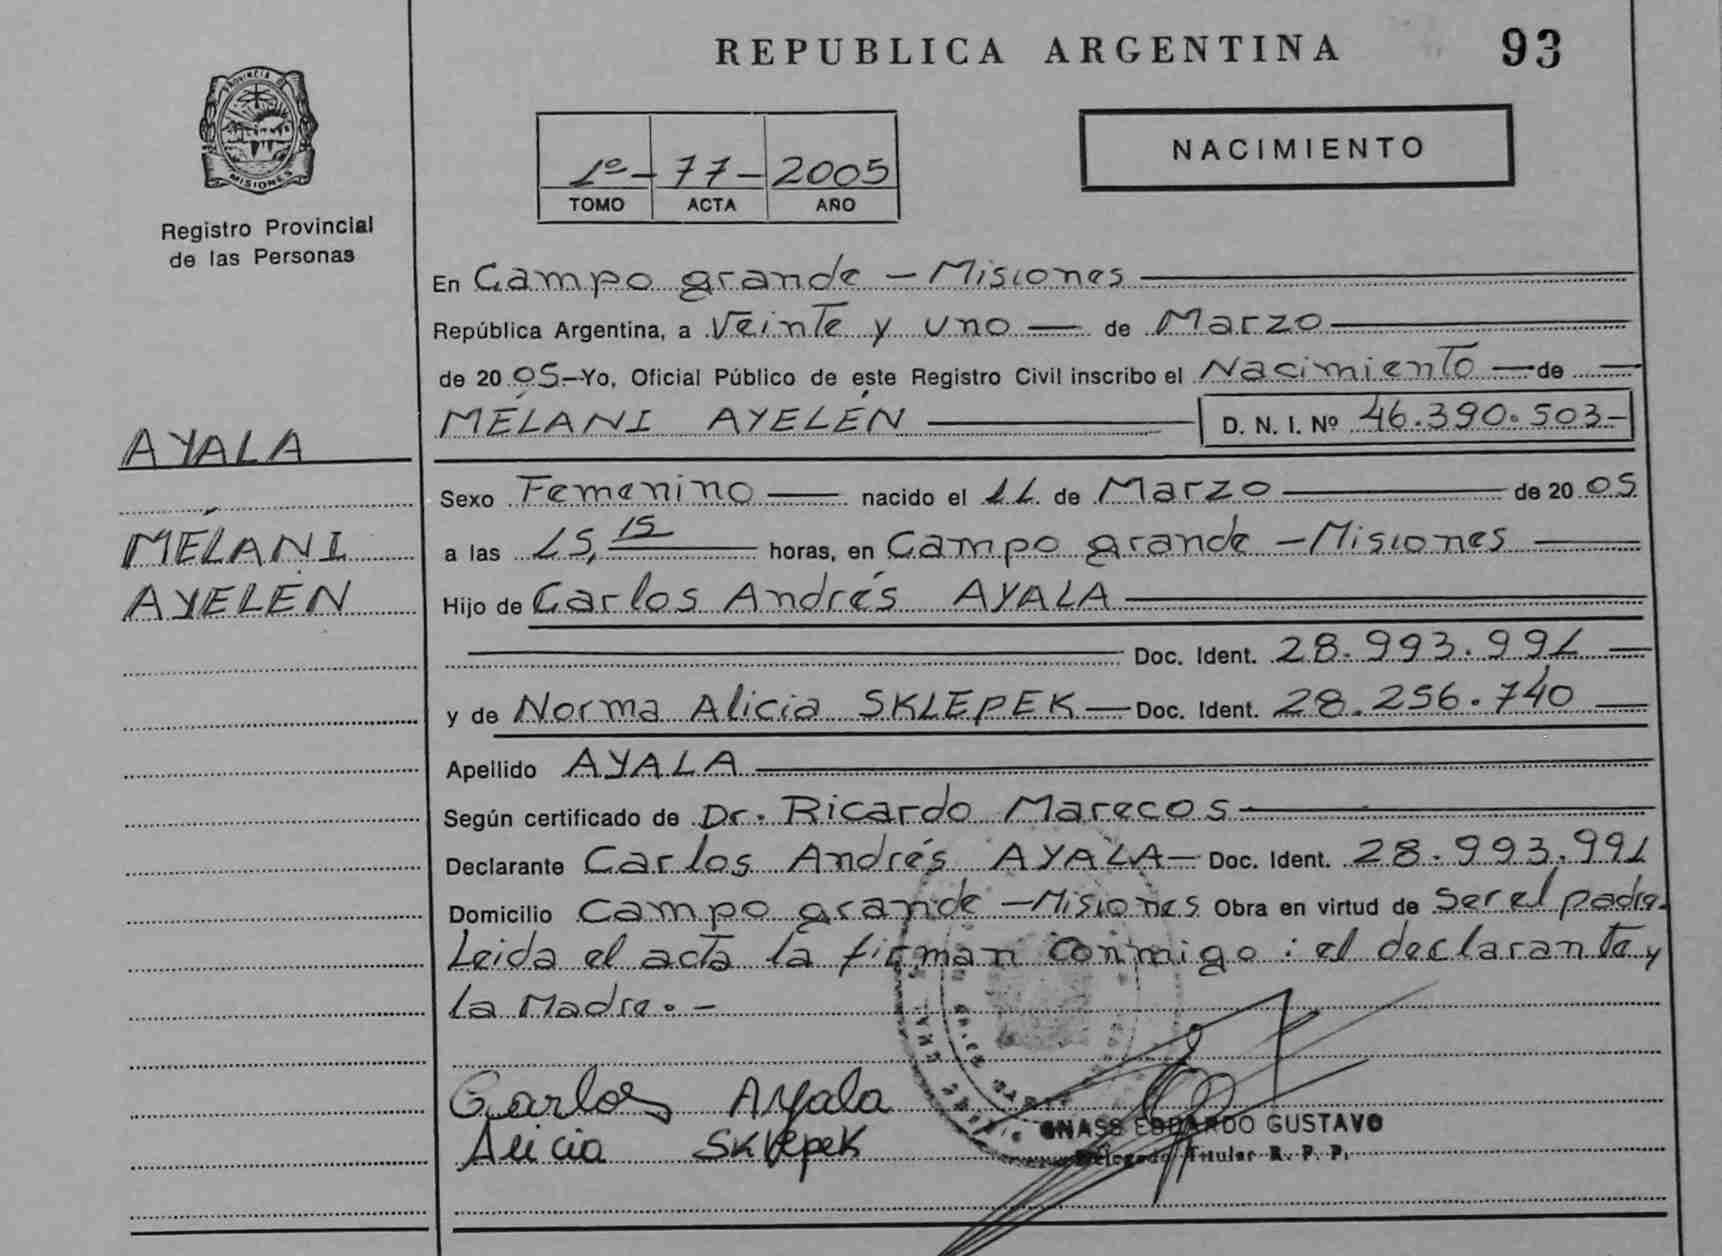 REPUBLICA ARGENTINA 93
PROVINCIA DE
MISIONES
Registro Provincial
de las Personas
1º - 77 - 2005
TOMO ACTA AÑO
NACIMIENTO
En Campo grande - Misiones
República Argentina, a Veinte y uno de Marzo
de 20 05 - Yo, Oficial Público de este Registro Civil inscribo el Nacimiento de
MÉLANI AYELÉN D. N. I. Nº 46.390.503-
AYALA
MÉLANI
AYELÉN
Sexo Femenino nacido el 11 de Marzo de 20 05
a las 15,15 horas, en Campo grande - Misiones
Hijo de Carlos Andrés AYALA
Doc. Ident. 28.993.991
y de Norma Alicia SKLEPEK Doc. Ident. 28.256.740
Apellido AYALA
Según certificado de Dr. Ricardo Marecos
Declarante Carlos Andrés AYALA - Doc. Ident. 28.993.991
Domicilio Campo grande - Misiones Obra en virtud de Ser el padre.
Leida el acta la firman conmigo: el declarante y
la Madre. -
Carlos Ayala
Alicia Sklepek
GNASS EDUARDO GUSTAVO
Delegado Titular R. P. P.